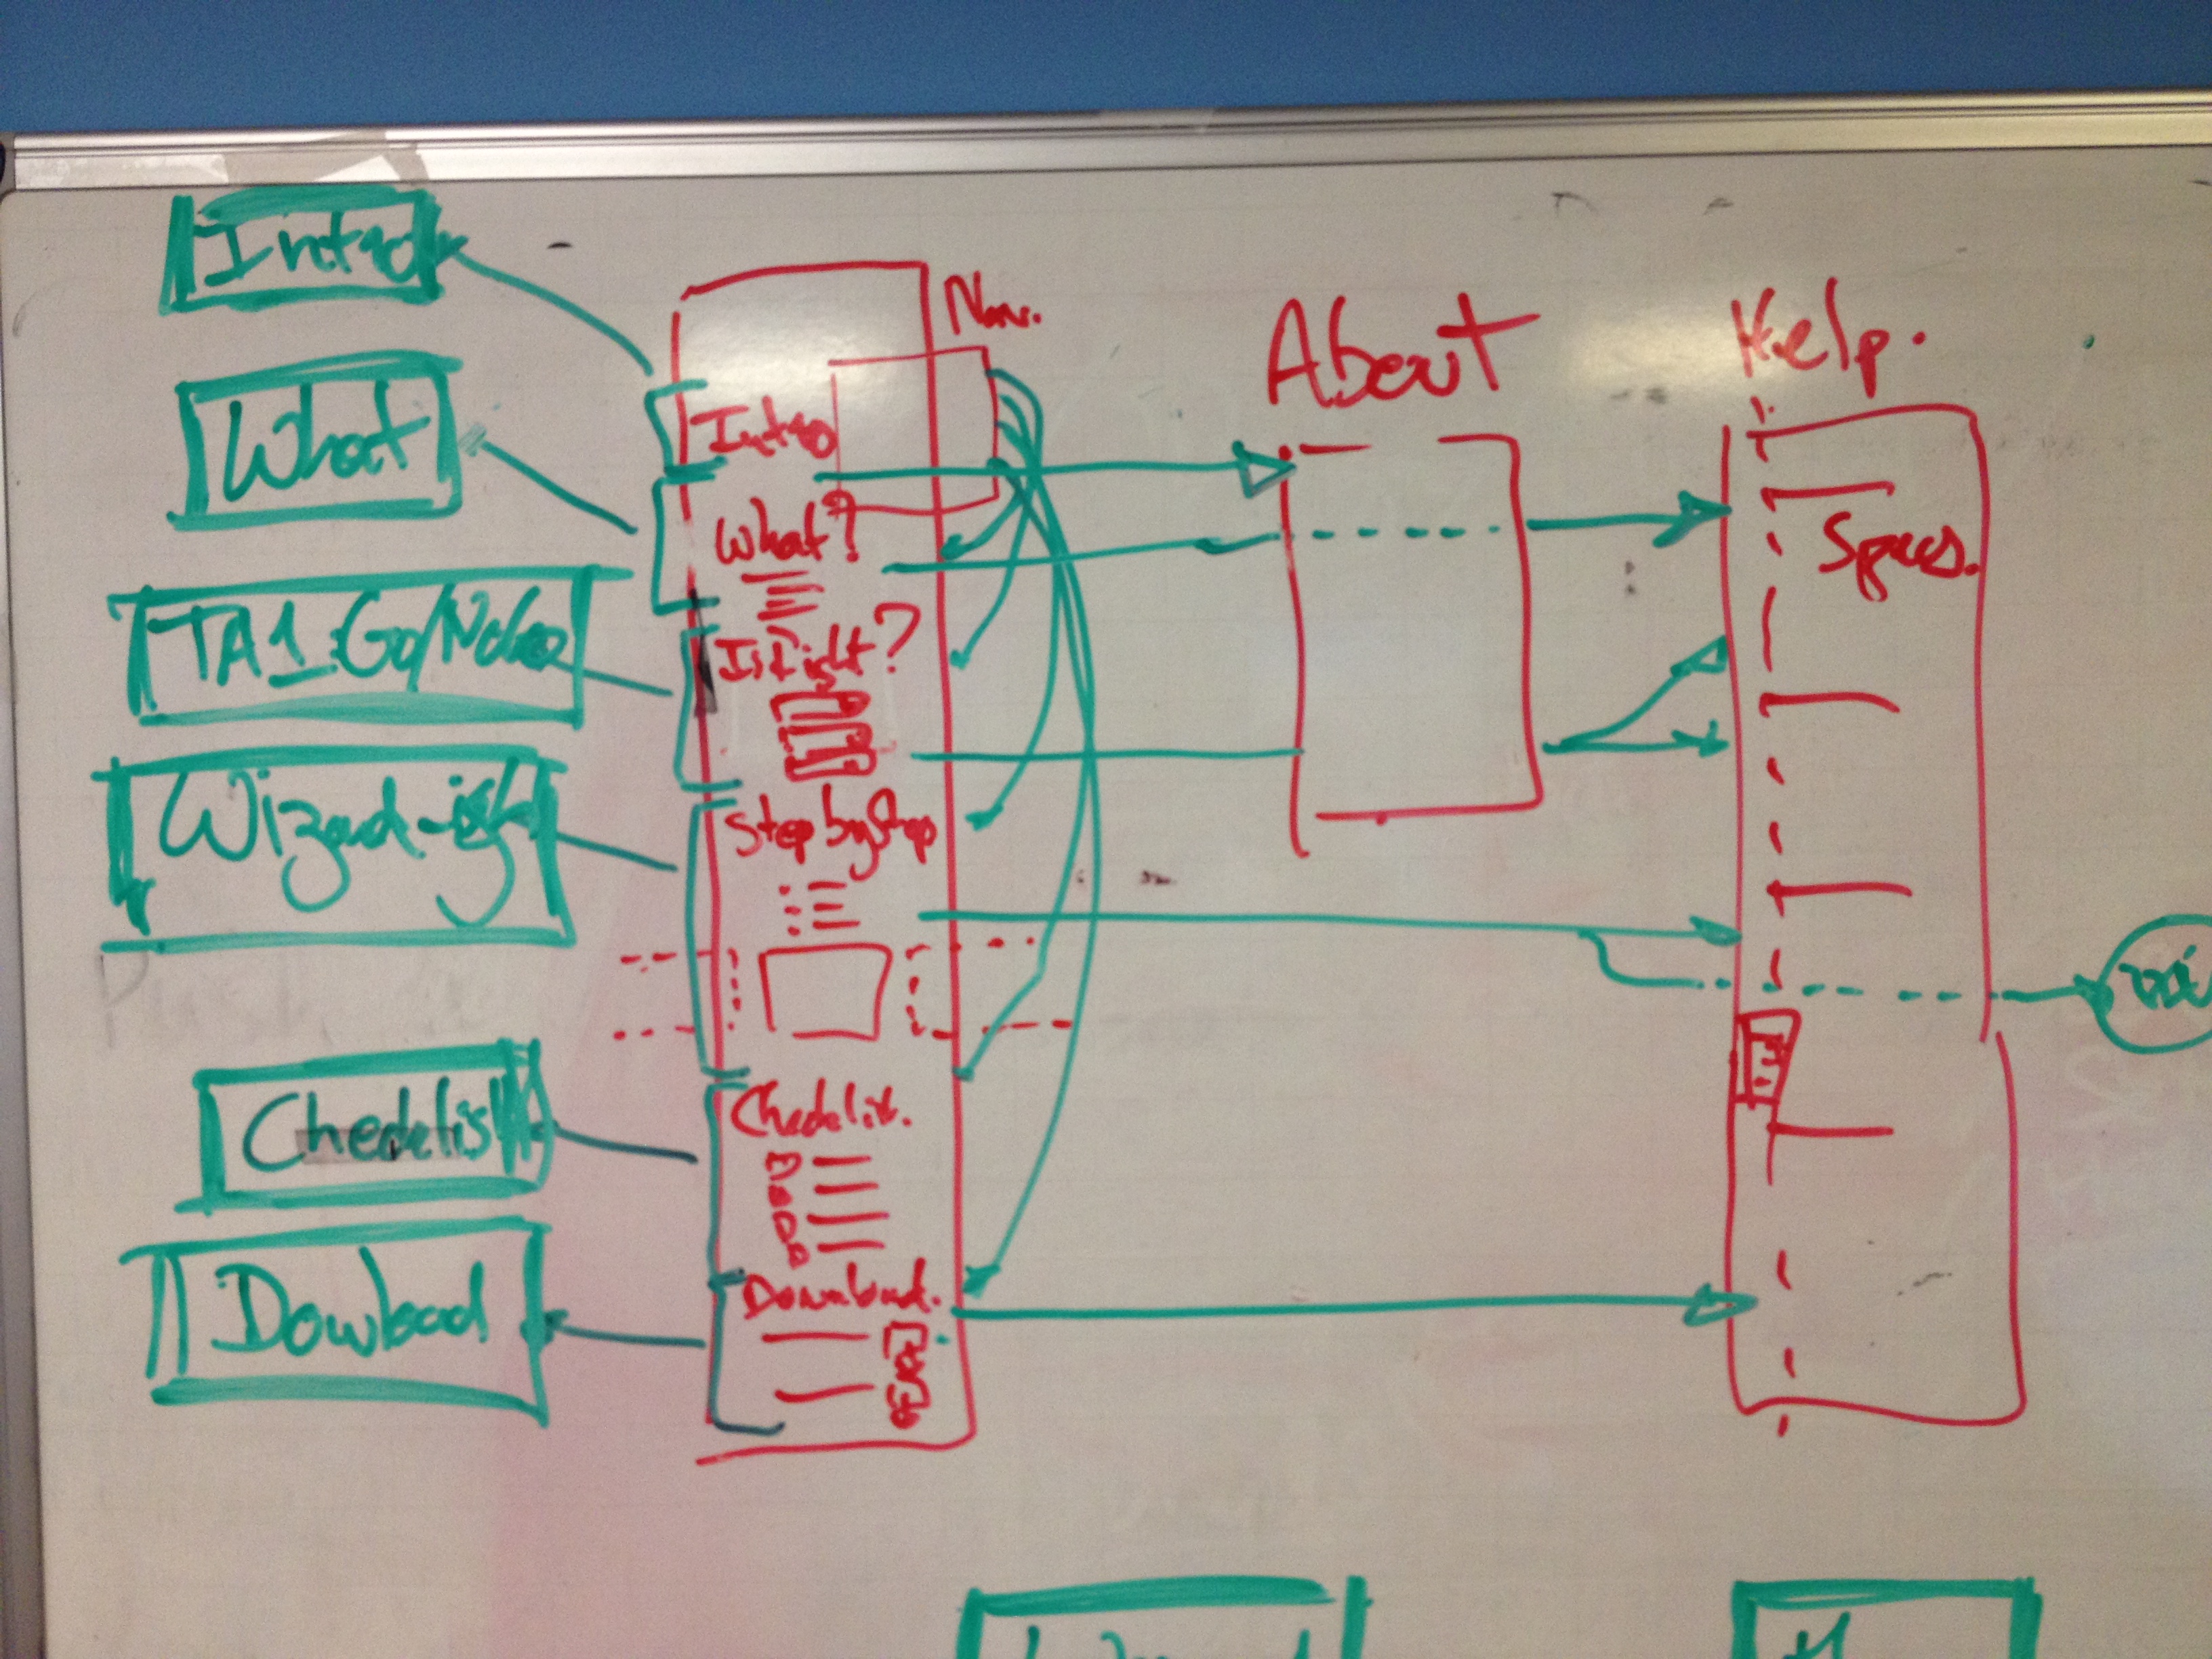 Intro
What
TA1:
Wizard-ish
Checklist
Dowload
Nav.
Intro
What?
Is Right?
Step by Step
Checklist.
Download.
About
Help.
Specs.